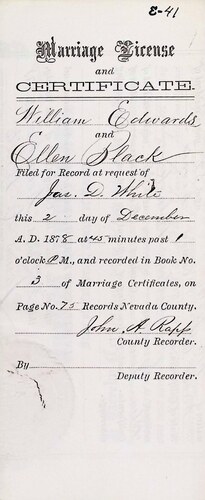 E-41
Marriage License
and
CERTIFICATE.
William Edwards
and
Ellen Black
Filed for Record at request of
Jas. D. White
this 2 day of December
A. D. 1878 at 45 minutes past 1
o'clock P M., and recorded in Book No.
3 of Marriage Certificates, on
Page No. 75 Records Nevada County.
John A. Rapp
County Recorder.
By
Deputy Recorder.